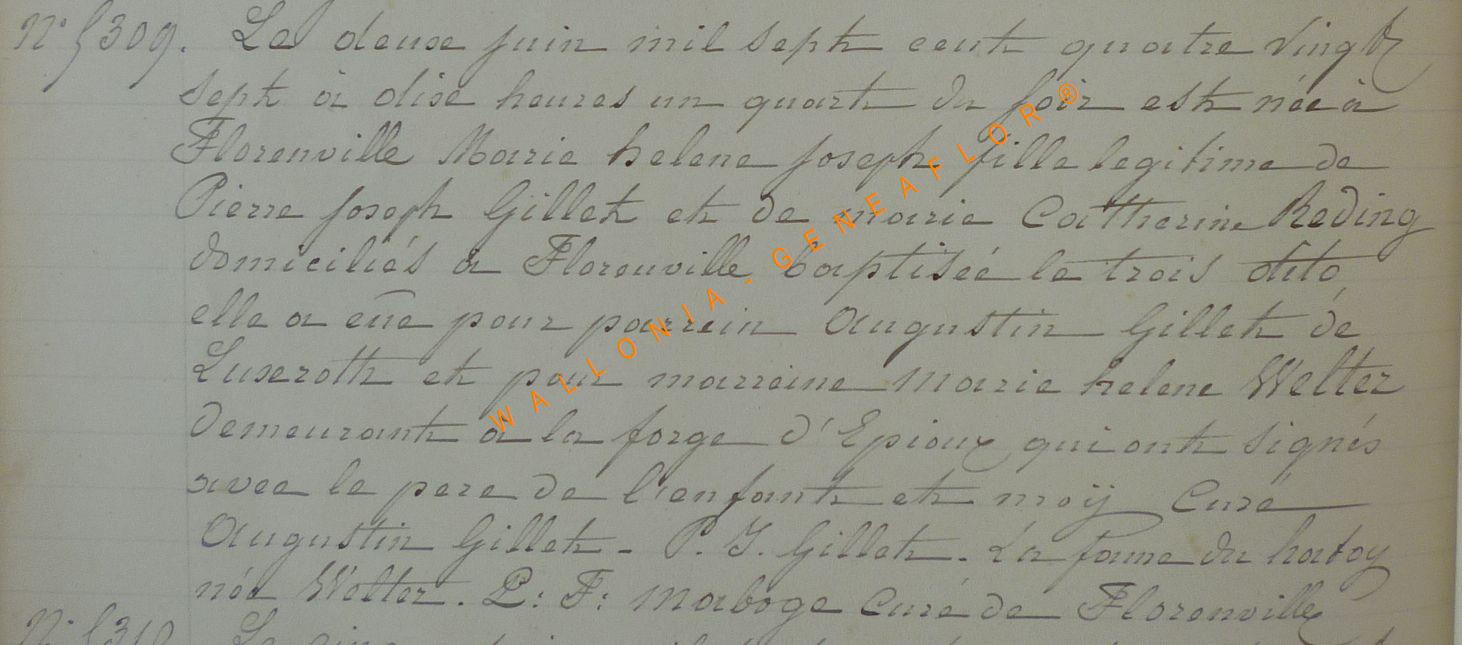 N° 5309. Le deux juin mil sept cent quatre vingt
sept à dix heures un quart du soir est née à
Florenville Marie helene joseph fille legitime de
Pierre joseph Gillet et de marie Catherine Reding
domiciliés à Florenville baptisée le trois dito
elle a eüe pour parrein Augustin Gillet de
Luxeroth et pour marreine Marie helene Welter
demeurant à la forge d'Epioux qui ont signés
avec le pere de l'enfant et moÿ Curé
Augustin Gillet - P. J. Gillet. La fame du hatoy
née Welter. P: F: Maboge Curé de Florenville
N° 5310 Le cinq
WALLONIA - GENEAFLOR ®